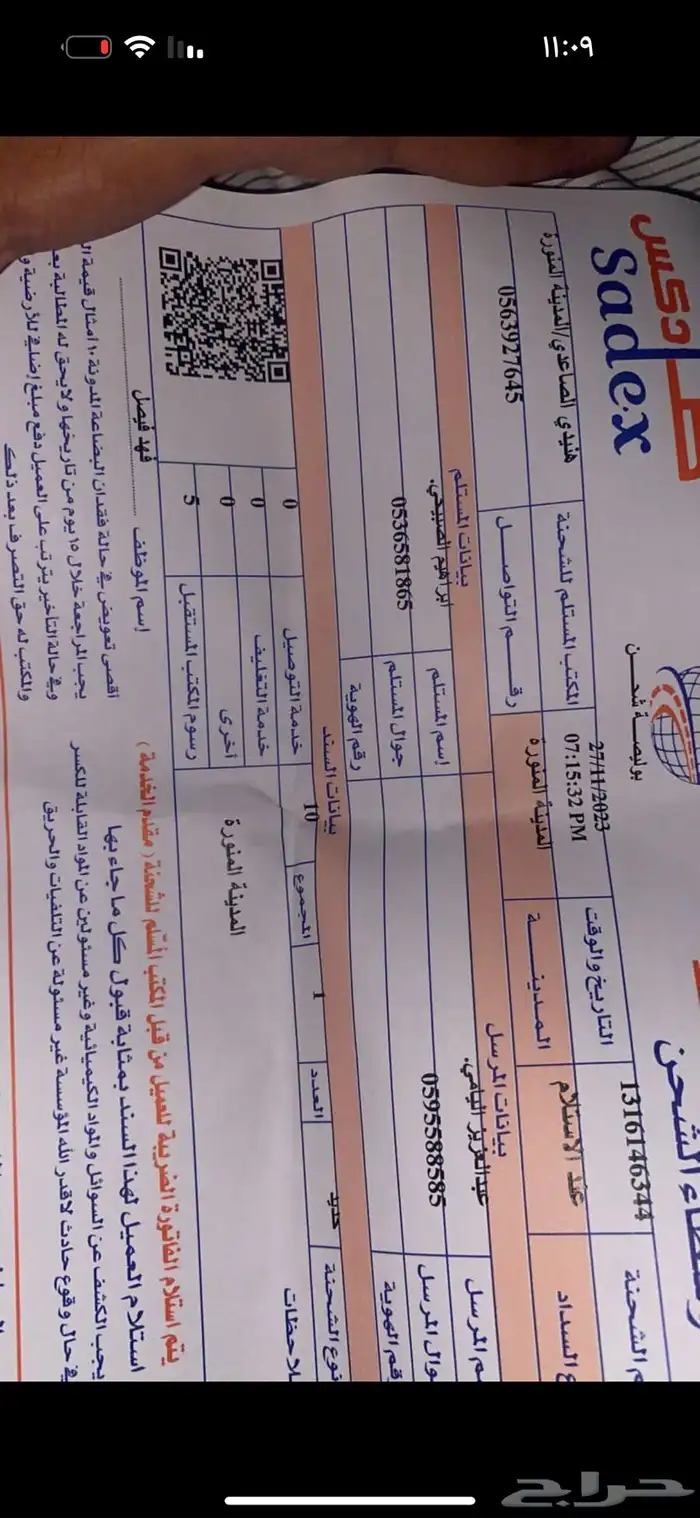 ١١:٠٩
دكس
Sadex
وسطاء الشحن
بوليصة شحن
م الشحنة
1316146344
التاريخ والوقت
27/11/2023
07:15:32 PM
المكتب المستلم للشحنة
هنيدي الصاعدي/المدينة المنورة
ع السداد
عند الاستلام
المدينة
المدينة المنورة
رقم التواصل
0563927645
بيانات المرسل
بيانات المستلم
م المرسل
عبدالعزيز اليامي.
إسم المستلم
ابراهيم الصبيحي.
وال المرسل
0595588585
جوال المستلم
0536581865
قم الهوية
رقم الهوية
بيانات السند
نوع الشحنة
حديد
العدد
1
المجموع
10
خدمة التوصيل
0
لاحظات
خدمة التغليف
0
المدينة المنورة
أخرى
0
رسوم المكتب المستقبل
5
يتم استلام الفاتورة الضريبة للعميل من قبل المكتب المسلم للشحنة ( مقدم الخدمة )
إسم الموظف
فهد فيصل
استلام العميل لهذا السند بمثابة قبول كل ما جاء بها
يجب الكشف عن السوائل والمواد الكيميائية وغير مسئولين عن المواد القابلة للكسر
في حال وقوع حادث لاقدر الله المؤسسة غير مسئولة عن التلفيات والحريق
أقصى تعويض في حالة فقدان البضاعة المدونة ١٠ أمثال قيمة ال
يجب المراجعة خلال ١٥ يوم من تاريخها ولا يحق له المطالبة بعد
وفي حالة التأخير يترتب على العميل دفع مبلغ إضافي للأرضية و
والمكتب له حق التصرف بعد ذلك
حراج